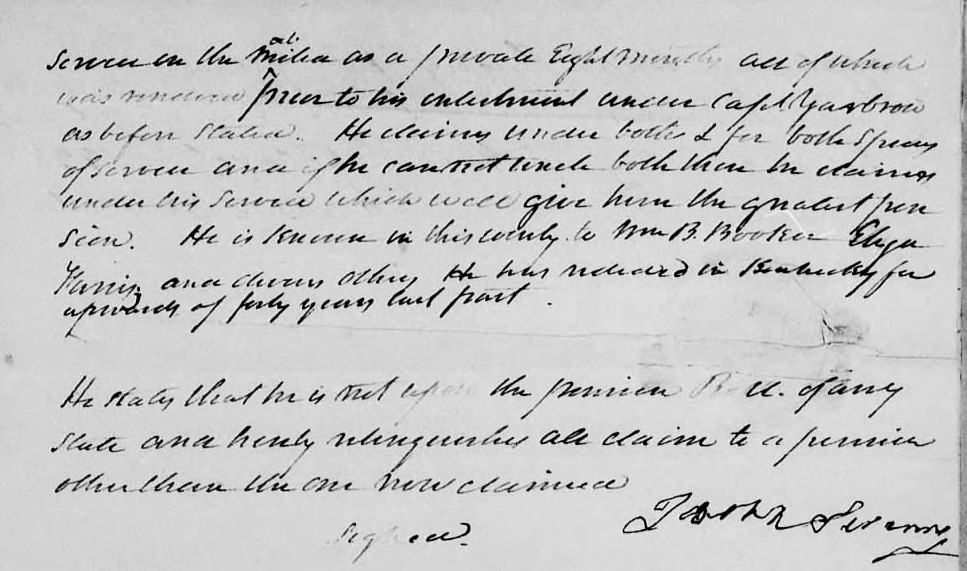 at
Service in the Militia as a private Eight months all of which
was rendered prior to his enlistment under Capt Yarbrou
as before stated. He claims under both & for both Species
of service and if he cannot under both then he claims
under his Service which will give him the greatest pen
sion. He is known in this county to Wm B. Booker Elija
Farris, and divers others He has resided in Kentucky for
upwards of forty years last past.
He states that he is not upon the pension Roll. of any
State and hereby relinquishes all claim to a pension
other than the one now claimed
Signed.